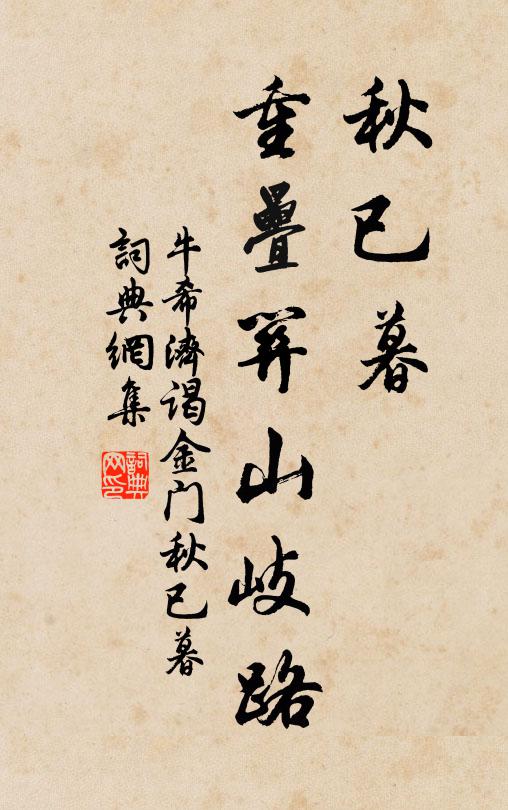 秋已暮
重疊関山岐路
牛希濟谒金门秋已暮
詞典網集
詞典網印